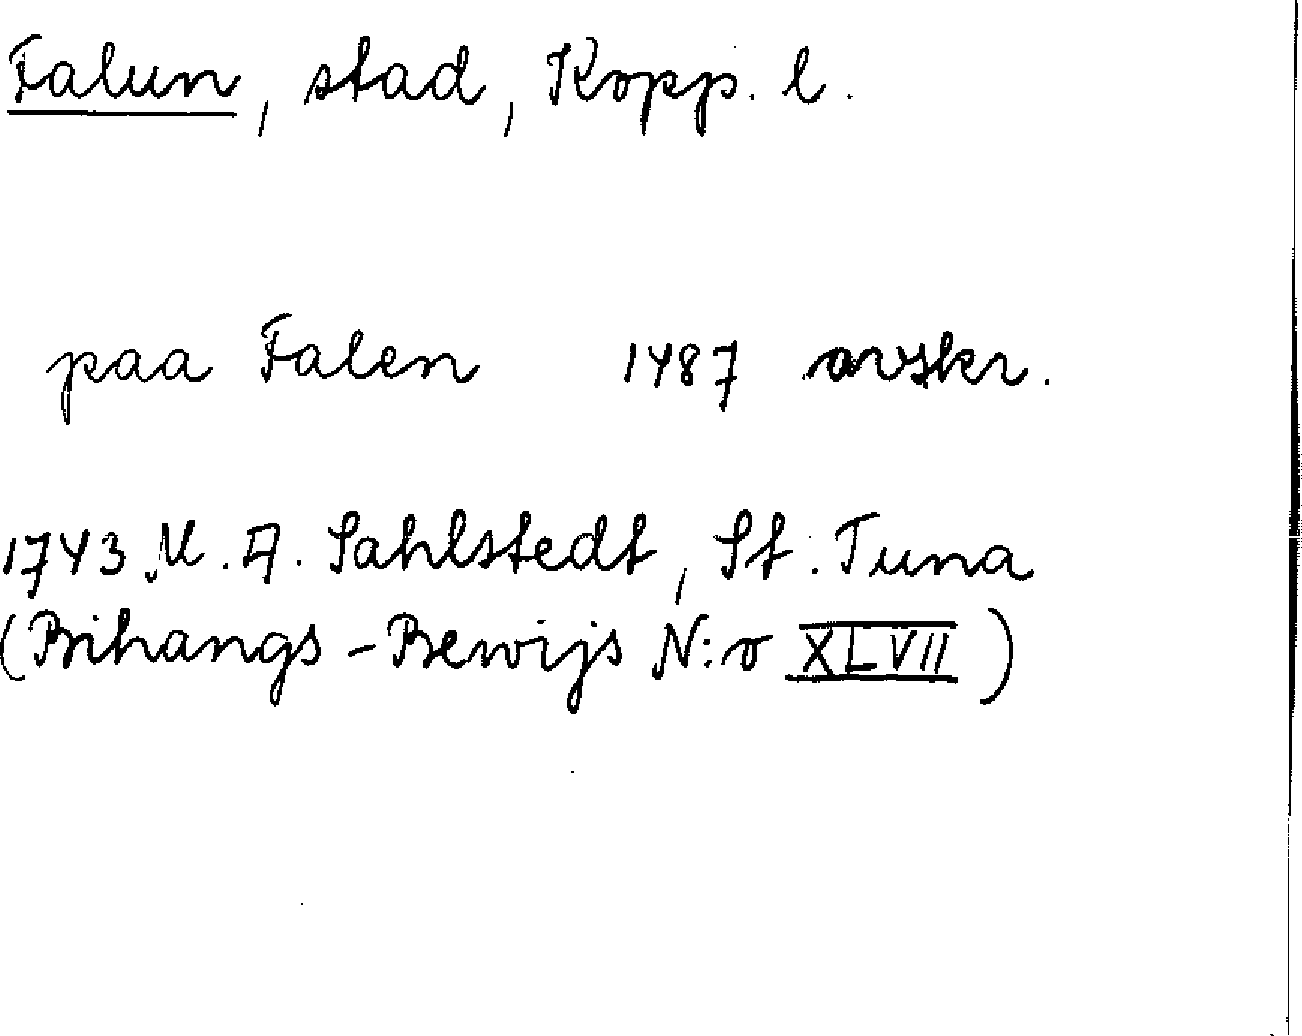 Falun, stad, Kopp. l.
paa Falen 1487 avskr.
1743 M. A. Sahlstedt, St. Tuna
(Bihangs-Bewijs N:o XLVII)